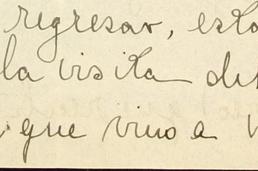 regresar, esta
la visita de
que vino a